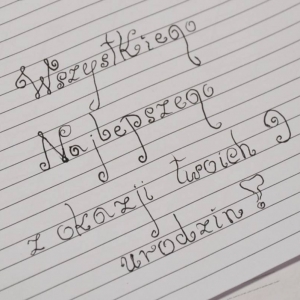 Wszystkiego
Najlepszego
z okazji twoich 9
urodzin?